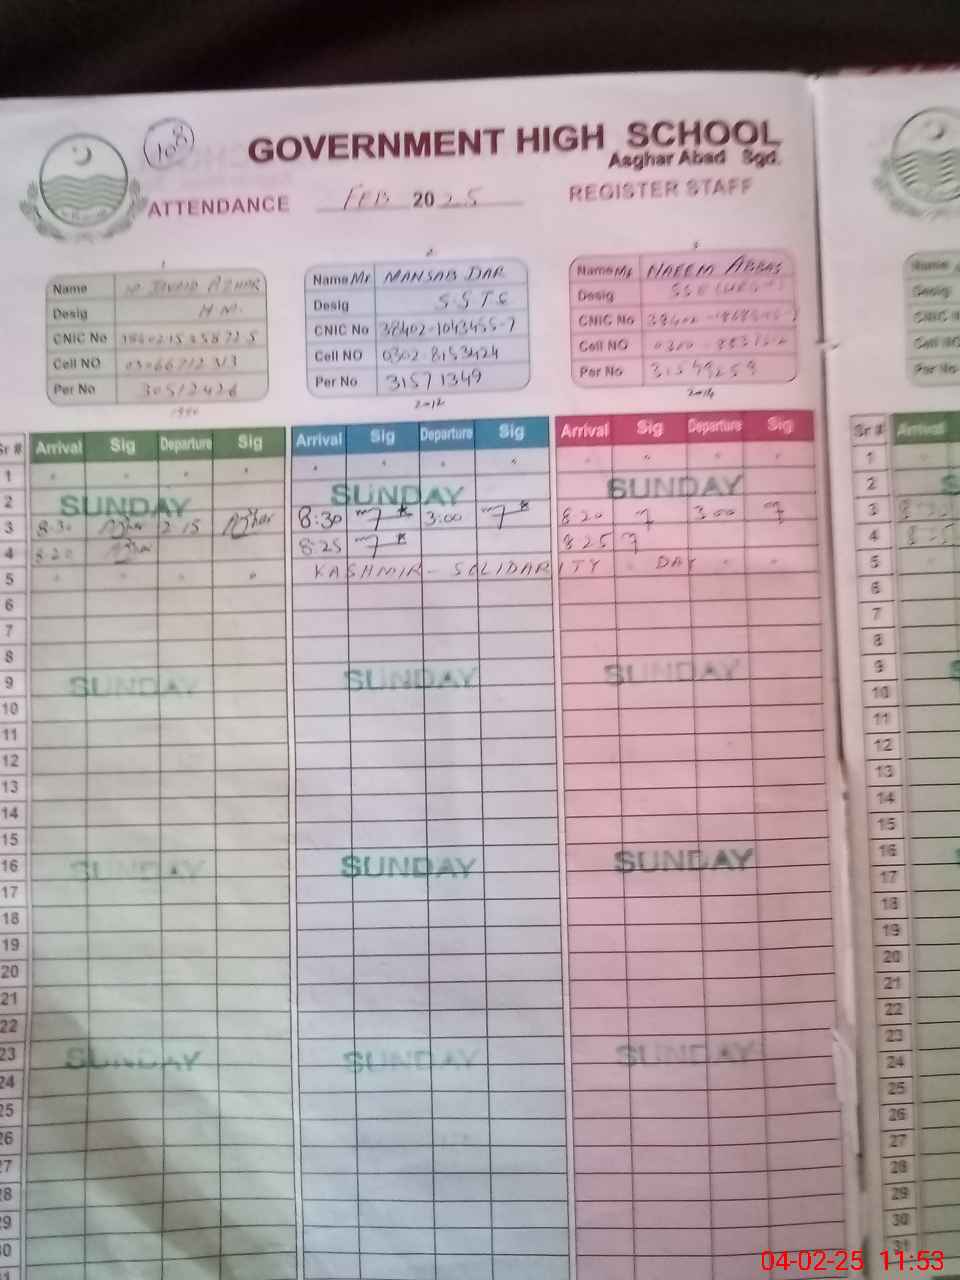 108
GOVERNMENT HIGH SCHOOL
Asghar Abad Sgd.
ATTENDANCE FEB 2025 REGISTER STAFF
1
Name JAVAID AZHAR
Desig H.M.
CNIC No
Cell NO
Per No 30512426
2
Name Mr MANSAB DAR
Desig S.S.T.S
CNIC No 38402-1043455-7
Cell NO 0302-8153424
Per No 31571349
2012
3
Name Mr NAEEM ABBAS
Desig
CNIC No
Cell NO
Per No 31579259
2014
Sr # Arrival Sig Departure Sig Arrival Sig Departure Sig Arrival Sig Departure Sig
1
2 SUNDAY SUNDAY SUNDAY
3 8:30 Azhar 2 15 Azhar 8:30 3:00 8 20 3 00
4 8:20 Azhar 8:25 8 25
5 KASHMIR - SOLIDARITY DAY
6
7
8
9 SUNDAY SUNDAY SUNDAY
10
11
12
13
14
15
16 SUNDAY SUNDAY SUNDAY
17
18
19
20
21
22
23 SUNDAY SUNDAY SUNDAY
24
25
26
27
28
29
30
31
Name
Desig
CNIC No
Cell NO
Per No
Sr # Arrival
1
2
3
4
5
6
7
8
9
10
11
12
13
14
15
16
17
18
19
20
21
22
23
24
25
26
27
28
29
30
31
04-02-25 11:53